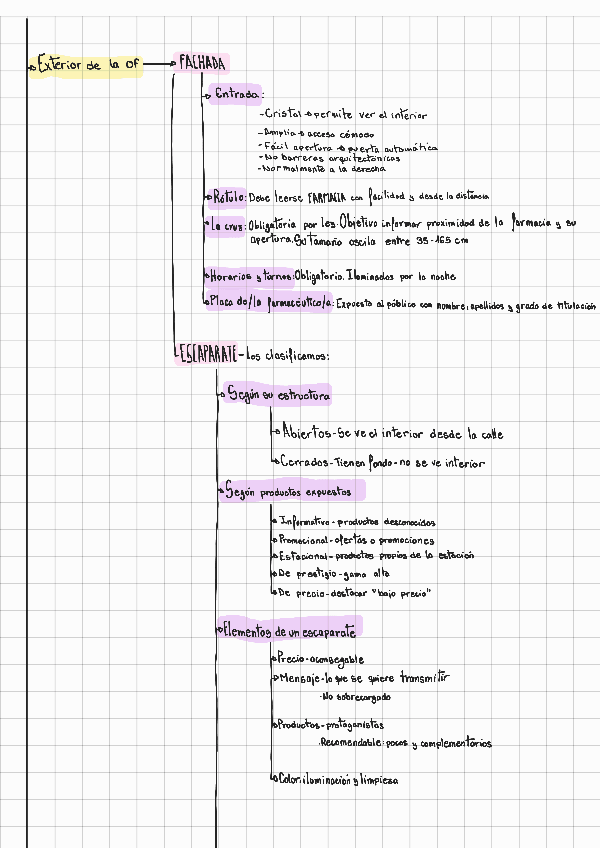 Exterior de la of → FACHADA
Entrada:
-Cristal → permite ver el interior
-Amplia → acceso cómodo
-Fácil apertura → puerta automática
-No barreras arquitectónicas
-Normalmente a la derecha
Rótulo: Debe leerse FARMACIA con facilidad y desde la distancia
La cruz: Obligatoria por ley. Objetivo informar proximidad de la farmacia y su
apertura. Su tamaño oscila entre 35-165 cm
Horarios y turnos: Obligatorio. Iluminados por la noche
Placa de/la farmacéutico/a: Expuesta al público con nombre, apellidos y grado de titulación
ESCAPARATE - Los clasificamos:
Según su estructura
Abiertos - Se ve el interior desde la calle
Cerrados - Tienen fondo - no se ve interior
Según productos expuestos
Informativo - productos desconocidos
Promocional - ofertas o promociones
Estacional - productos propios de la estación
De prestigio - gama alta
De precio - destacar "bajo precio"
Elementos de un escaparate
Precio - aconsegable
Mensaje - lo que se quiere transmitir
·No sobrecargado
Productos - protagonistas
·Recomendable: pocos y complementarios
Color, iluminación y limpieza